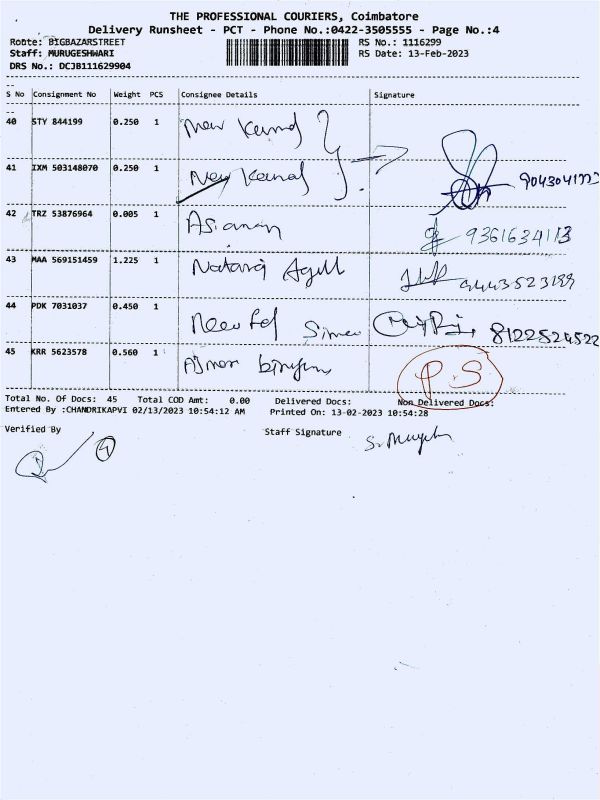 THE PROFESSIONAL COURIERS, Coimbatore
Delivery Runsheet - PCT - Phone No.:0422-3505555 - Page No.:4
Route: BIGBAZARSTREET RS No.: 1116299
Staff: MURUGESHWARI RS Date: 13-Feb-2023
DRS No.: DCJB111629904
S No Consignment No Weight PCS Consignee Details Signature
40 STY 844199 0.250 1 New
41 IXM 503148070 0.250 1 New
42 TRZ 53876964 0.005 1 9361634113
43 MAA 569151459 1.225 1 Nataraj 9443523199
44 PDK 7031037 0.450 1 New 8122524522
45 KRR 5623578 0.560 1 P.S
Total No. Of Docs: 45 Total COD Amt: 0.00 Delivered Docs: Non Delivered Docs:
Entered By :CHANDRIKAPVI 02/13/2023 10:54:12 AM Printed On: 13-02-2023 10:54:28
Verified By Staff Signature